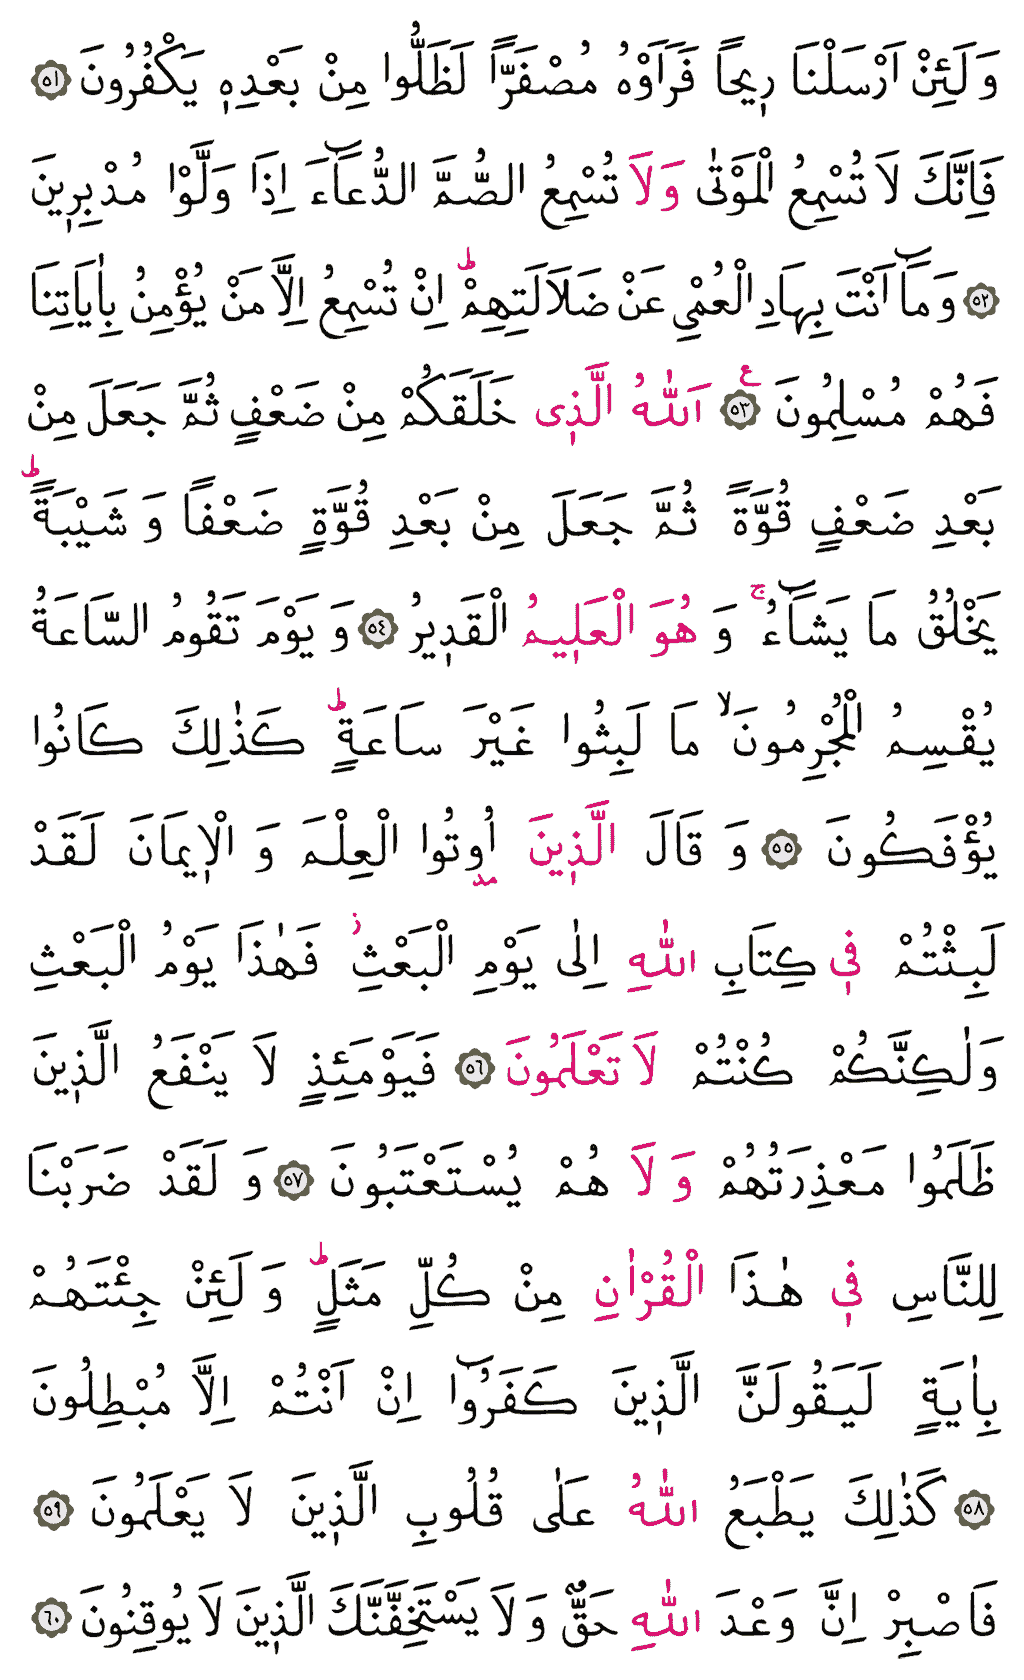 وَلَئِنْ اَرْسَلْنَا رٖيحاً فَرَاَوْهُ مُصْفَرًّا لَظَلُّوا مِنْ بَعْدِهٖ يَكْفُرُونَ ﴿٥١﴾
فَاِنَّكَ لَا تُسْمِعُ الْمَوْتٰى وَلَا تُسْمِعُ الصُّمَّ الدُّعَٓاءَ اِذَا وَلَّوْا مُدْبِرٖينَ
﴿٥٢﴾ وَمَٓا اَنْتَ بِهَادِ الْعُمْيِ عَنْ ضَلَالَتِهِمْؕ اِنْ تُسْمِعُ اِلَّا مَنْ يُؤْمِنُ بِاٰيَاتِنَا
فَهُمْ مُسْلِمُونَ ﴿٥٣﴾ ع اَللّٰهُ الَّذٖى خَلَقَكُمْ مِنْ ضَعْفٍ ثُمَّ جَعَلَ مِنْ
بَعْدِ ضَعْفٍ قُوَّةً ثُمَّ جَعَلَ مِنْ بَعْدِ قُوَّةٍ ضَعْفاً وَ شَيْبَةًؕ
يَخْلُقُ مَا يَشَٓاءُۚ وَ هُوَ الْعَلٖيمُ الْقَدٖيرُ ﴿٥٤﴾ وَ يَوْمَ تَقُومُ السَّاعَةُ
يُقْسِمُ الْمُجْرِمُونَۙ مَا لَبِثُوا غَيْرَ سَاعَةٍؕ كَذٰلِكَ كَانُوا
يُؤْفَكُونَ ﴿٥٥﴾ وَ قَالَ الَّذٖينَ اُوتُوا الْعِلْمَ وَ الْاٖيمَانَ لَقَدْ
لَبِثْتُمْ فٖي كِتَابِ اللّٰهِ اِلٰى يَوْمِ الْبَعْثِؗ فَهٰذَا يَوْمُ الْبَعْثِ
وَلٰكِنَّكُمْ كُنْتُمْ لَا تَعْلَمُونَ ﴿٥٦﴾ فَيَوْمَئِذٍ لَا يَنْفَعُ الَّذٖينَ
ظَلَمُوا مَعْذِرَتُهُمْ وَ لَا هُمْ يُسْتَعْتَبُونَ ﴿٥٧﴾ وَ لَقَدْ ضَرَبْنَا
لِلنَّاسِ فٖي هٰذَا الْقُرْاٰنِ مِنْ كُلِّ مَثَلٍؕ وَ لَئِنْ جِئْتَهُمْ
بِاٰيَةٍ لَيَقُولَنَّ الَّذٖينَ كَفَرُٓوا اِنْ اَنْتُمْ اِلَّا مُبْطِلُونَ
﴿٥٨﴾ كَذٰلِكَ يَطْبَعُ اللّٰهُ عَلٰى قُلُوبِ الَّذٖينَ لَا يَعْلَمُونَ ﴿٥٩﴾
فَاصْبِرْ اِنَّ وَعْدَ اللّٰهِ حَقٌّ وَ لَا يَسْتَخِفَّنَّكَ الَّذٖينَ لَا يُوقِنُونَ ﴿٦٠﴾